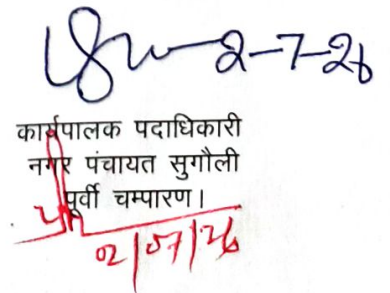 2-7-26
कार्यपालक पदाधिकारी
नगर पंचायत सुगौली
पूर्वी चम्पारण।
02/07/26